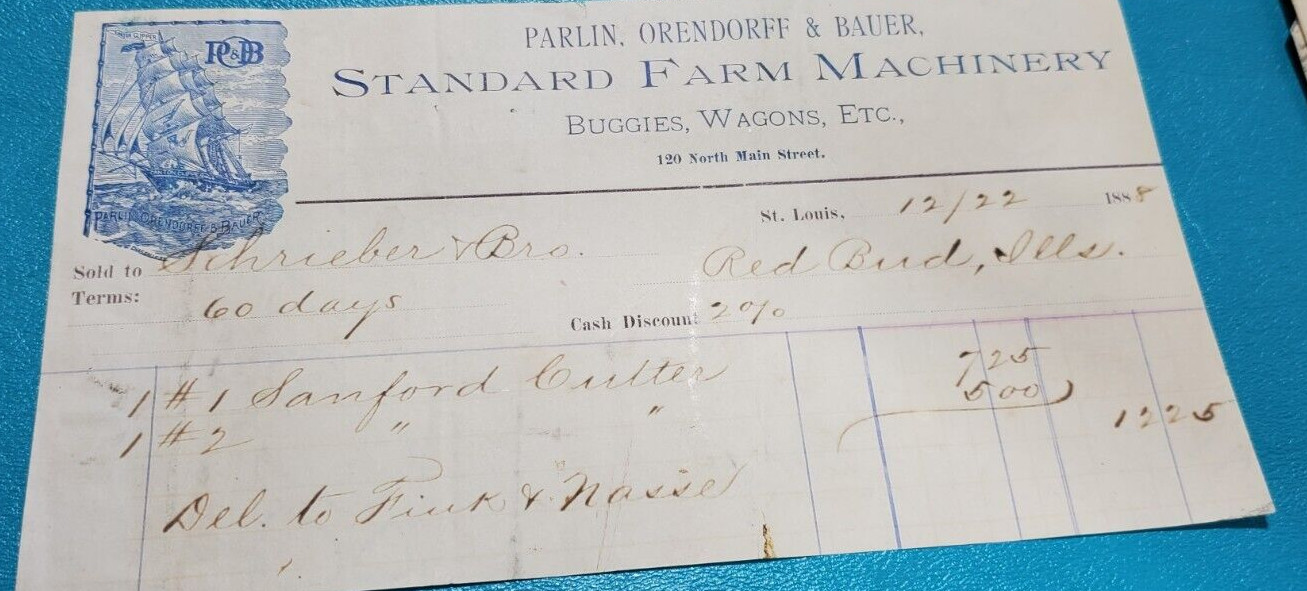 PO&B
PARLIN, ORENDORFF & BAUER,
STANDARD FARM MACHINERY
BUGGIES, WAGONS, ETC.,
120 North Main Street.
PARLIN ORENDORFF & BAUER
St. Louis, 12/22 1888
Sold to Schrieber & Bro. Red Bud, Ills.
Terms: 60 days Cash Discount 2%
1 #1 Sanford Cutter 725
1 #2 " " 500 1225
Del. to Fink & Nasse